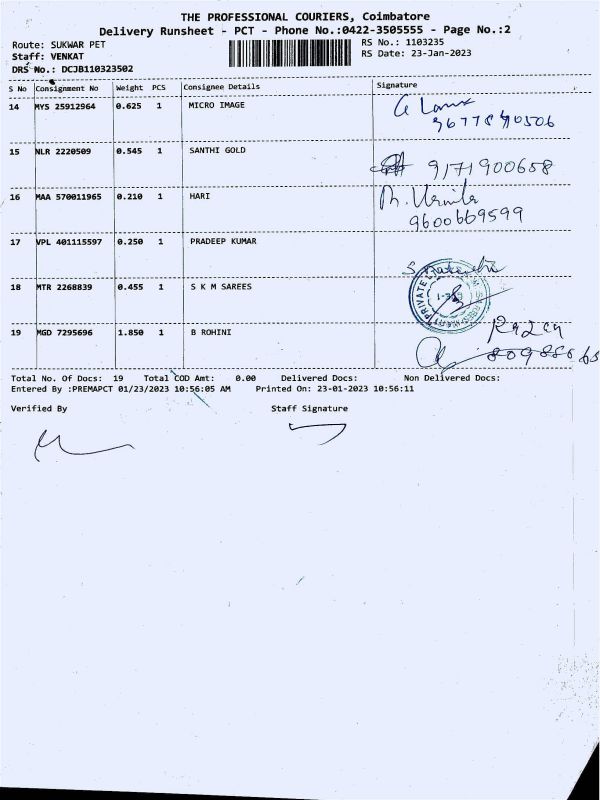 THE PROFESSIONAL COURIERS, Coimbatore
Delivery Runsheet - PCT - Phone No.:0422-3505555 - Page No.:2
Route: SUKWAR PET
Staff: VENKAT
DRS No.: DCJB110323502
RS No.: 1103235
RS Date: 23-Jan-2023
S No Consignment No Weight PCS Consignee Details Signature
14 MYS 25912964 0.625 1 MICRO IMAGE
15 NLR 2220509 0.545 1 SANTHI GOLD
9171900658
16 MAA 570011965 0.210 1 HARI
9600669599
17 VPL 401115597 0.250 1 PRADEEP KUMAR
18 MTR 2268839 0.455 1 S K M SAREES
PRIVATE
19 MGD 7295696 1.850 1 B ROHINI
Total No. Of Docs: 19 Total COD Amt: 0.00 Delivered Docs: Non Delivered Docs:
Entered By :PREMAPCT 01/23/2023 10:56:05 AM Printed On: 23-01-2023 10:56:11
Verified By Staff Signature